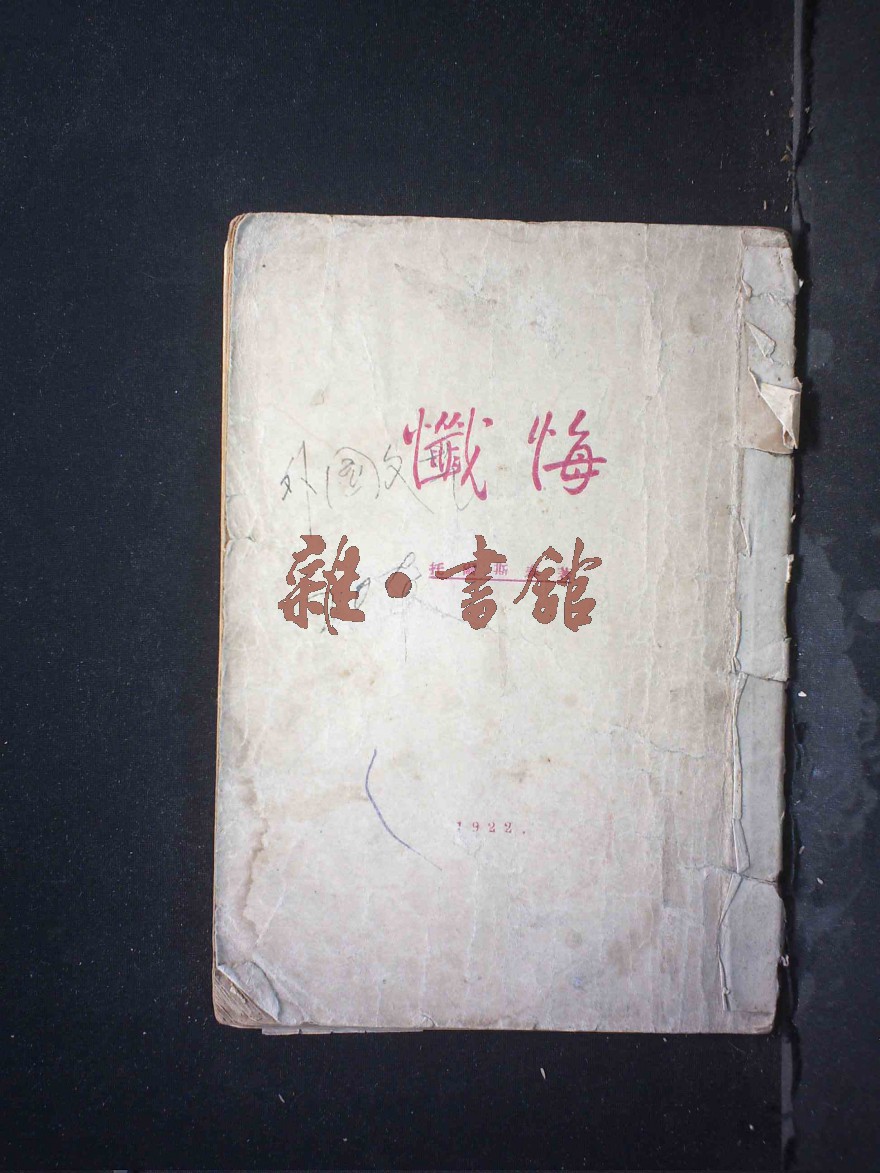 懺悔
外國文
托爾斯泰著
雜·書館
1922.